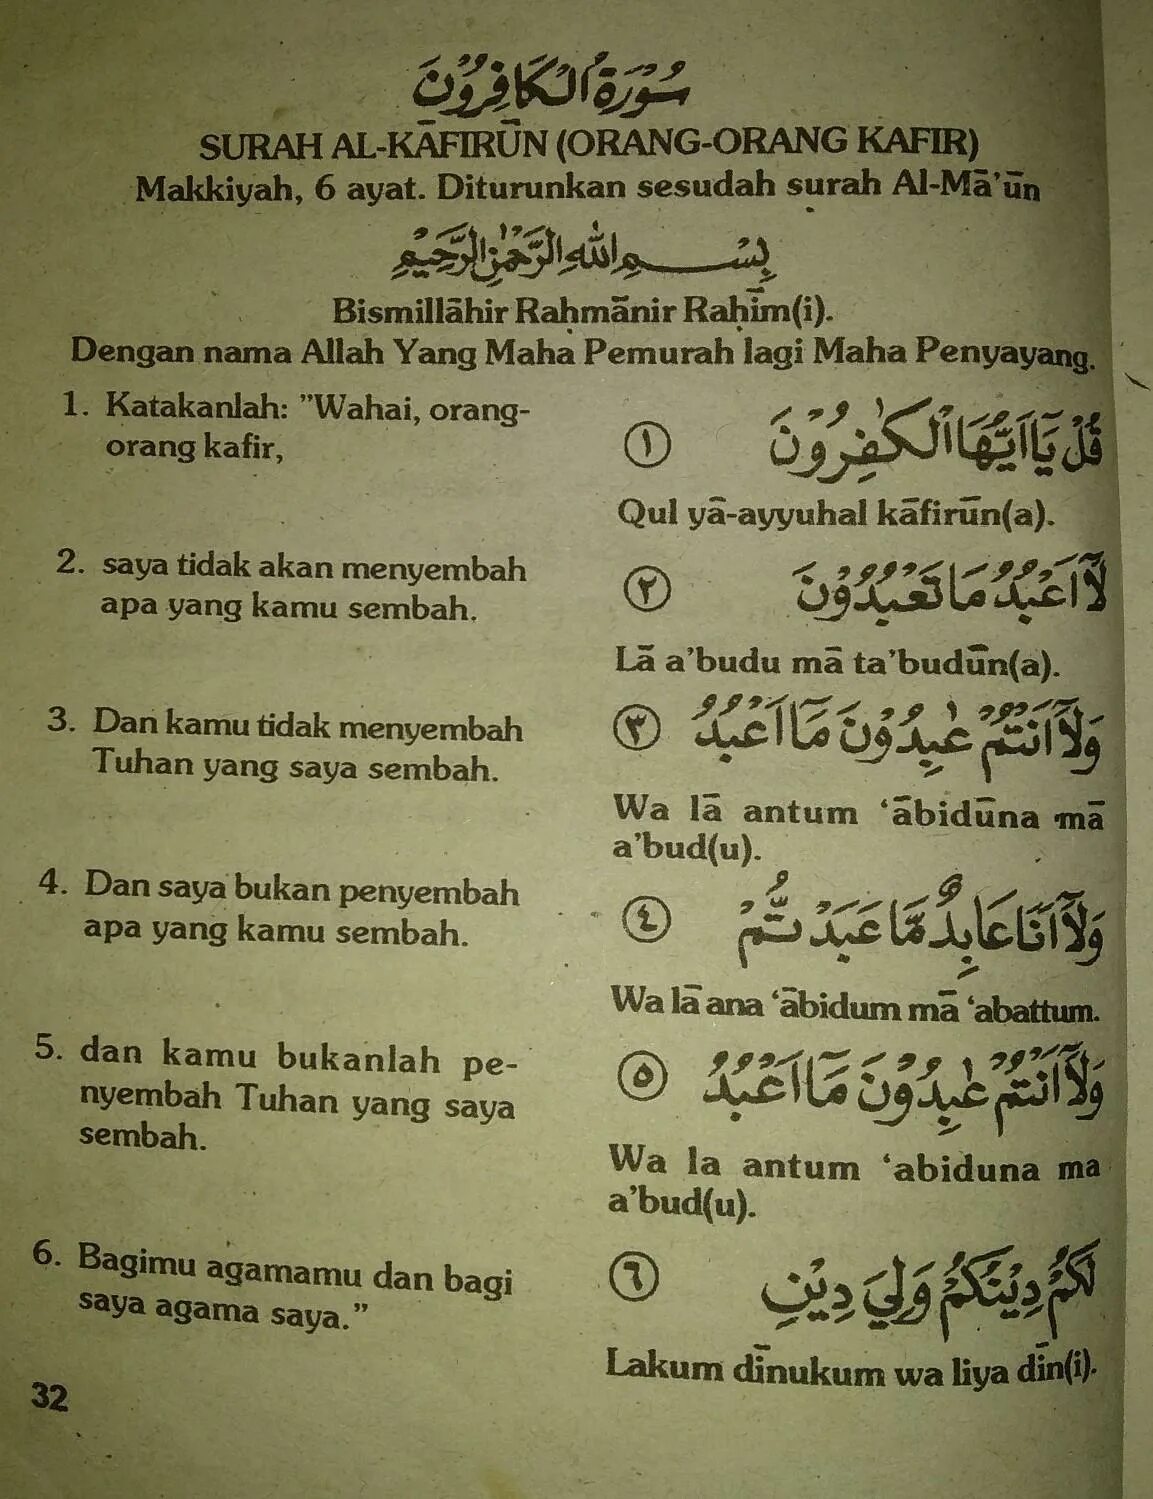 سُوْرَةُ الْكَافِرُوْنَ
SURAH AL-KĀFIRŪN (ORANG-ORANG KAFIR)
Makkiyah, 6 ayat. Diturunkan sesudah surah Al-Mā’ūn
بِسْمِ اللهِ الرَّحْمٰنِ الرَّحِيْمِ
Bismillāhir Raḥmānir Raḥīm(i).
Dengan nama Allah Yang Maha Pemurah lagi Maha Penyayang.
1. Katakanlah: ”Wahai, orang-
orang kafir,
قُلْ يَآ اَيُّهَا الْكٰفِرُوْنَ ①
Qul yā-ayyuhal kāfirūn(a).
2. saya tidak akan menyembah
apa yang kamu sembah.
لَآ اَعْبُدُ مَا تَعْبُدُوْنَ ②
Lā a’budu mā ta’budūn(a).
3. Dan kamu tidak menyembah
Tuhan yang saya sembah.
وَلَآ اَنْتُمْ عٰبِدُوْنَ مَآ اَعْبُدُ ③
Wa lā antum ‘ābidūna mā
a’bud(u).
4. Dan saya bukan penyembah
apa yang kamu sembah.
وَلَآ اَنَا۠ عَابِدٌ مَّا عَبَدْتُّمْ ④
Wa lā ana ‘ābidum mā ‘abattum.
5. dan kamu bukanlah pe-
nyembah Tuhan yang saya
sembah.
وَلَآ اَنْتُمْ عٰبِدُوْنَ مَآ اَعْبُدُ ⑤
Wa la antum ‘abiduna ma
a’bud(u).
6. Bagimu agamamu dan bagi
saya agama saya.”
لَكُمْ دِيْنُكُمْ وَلِيَ دِيْنِ ⑥
Lakum dīnukum wa liya dīn(i).
32